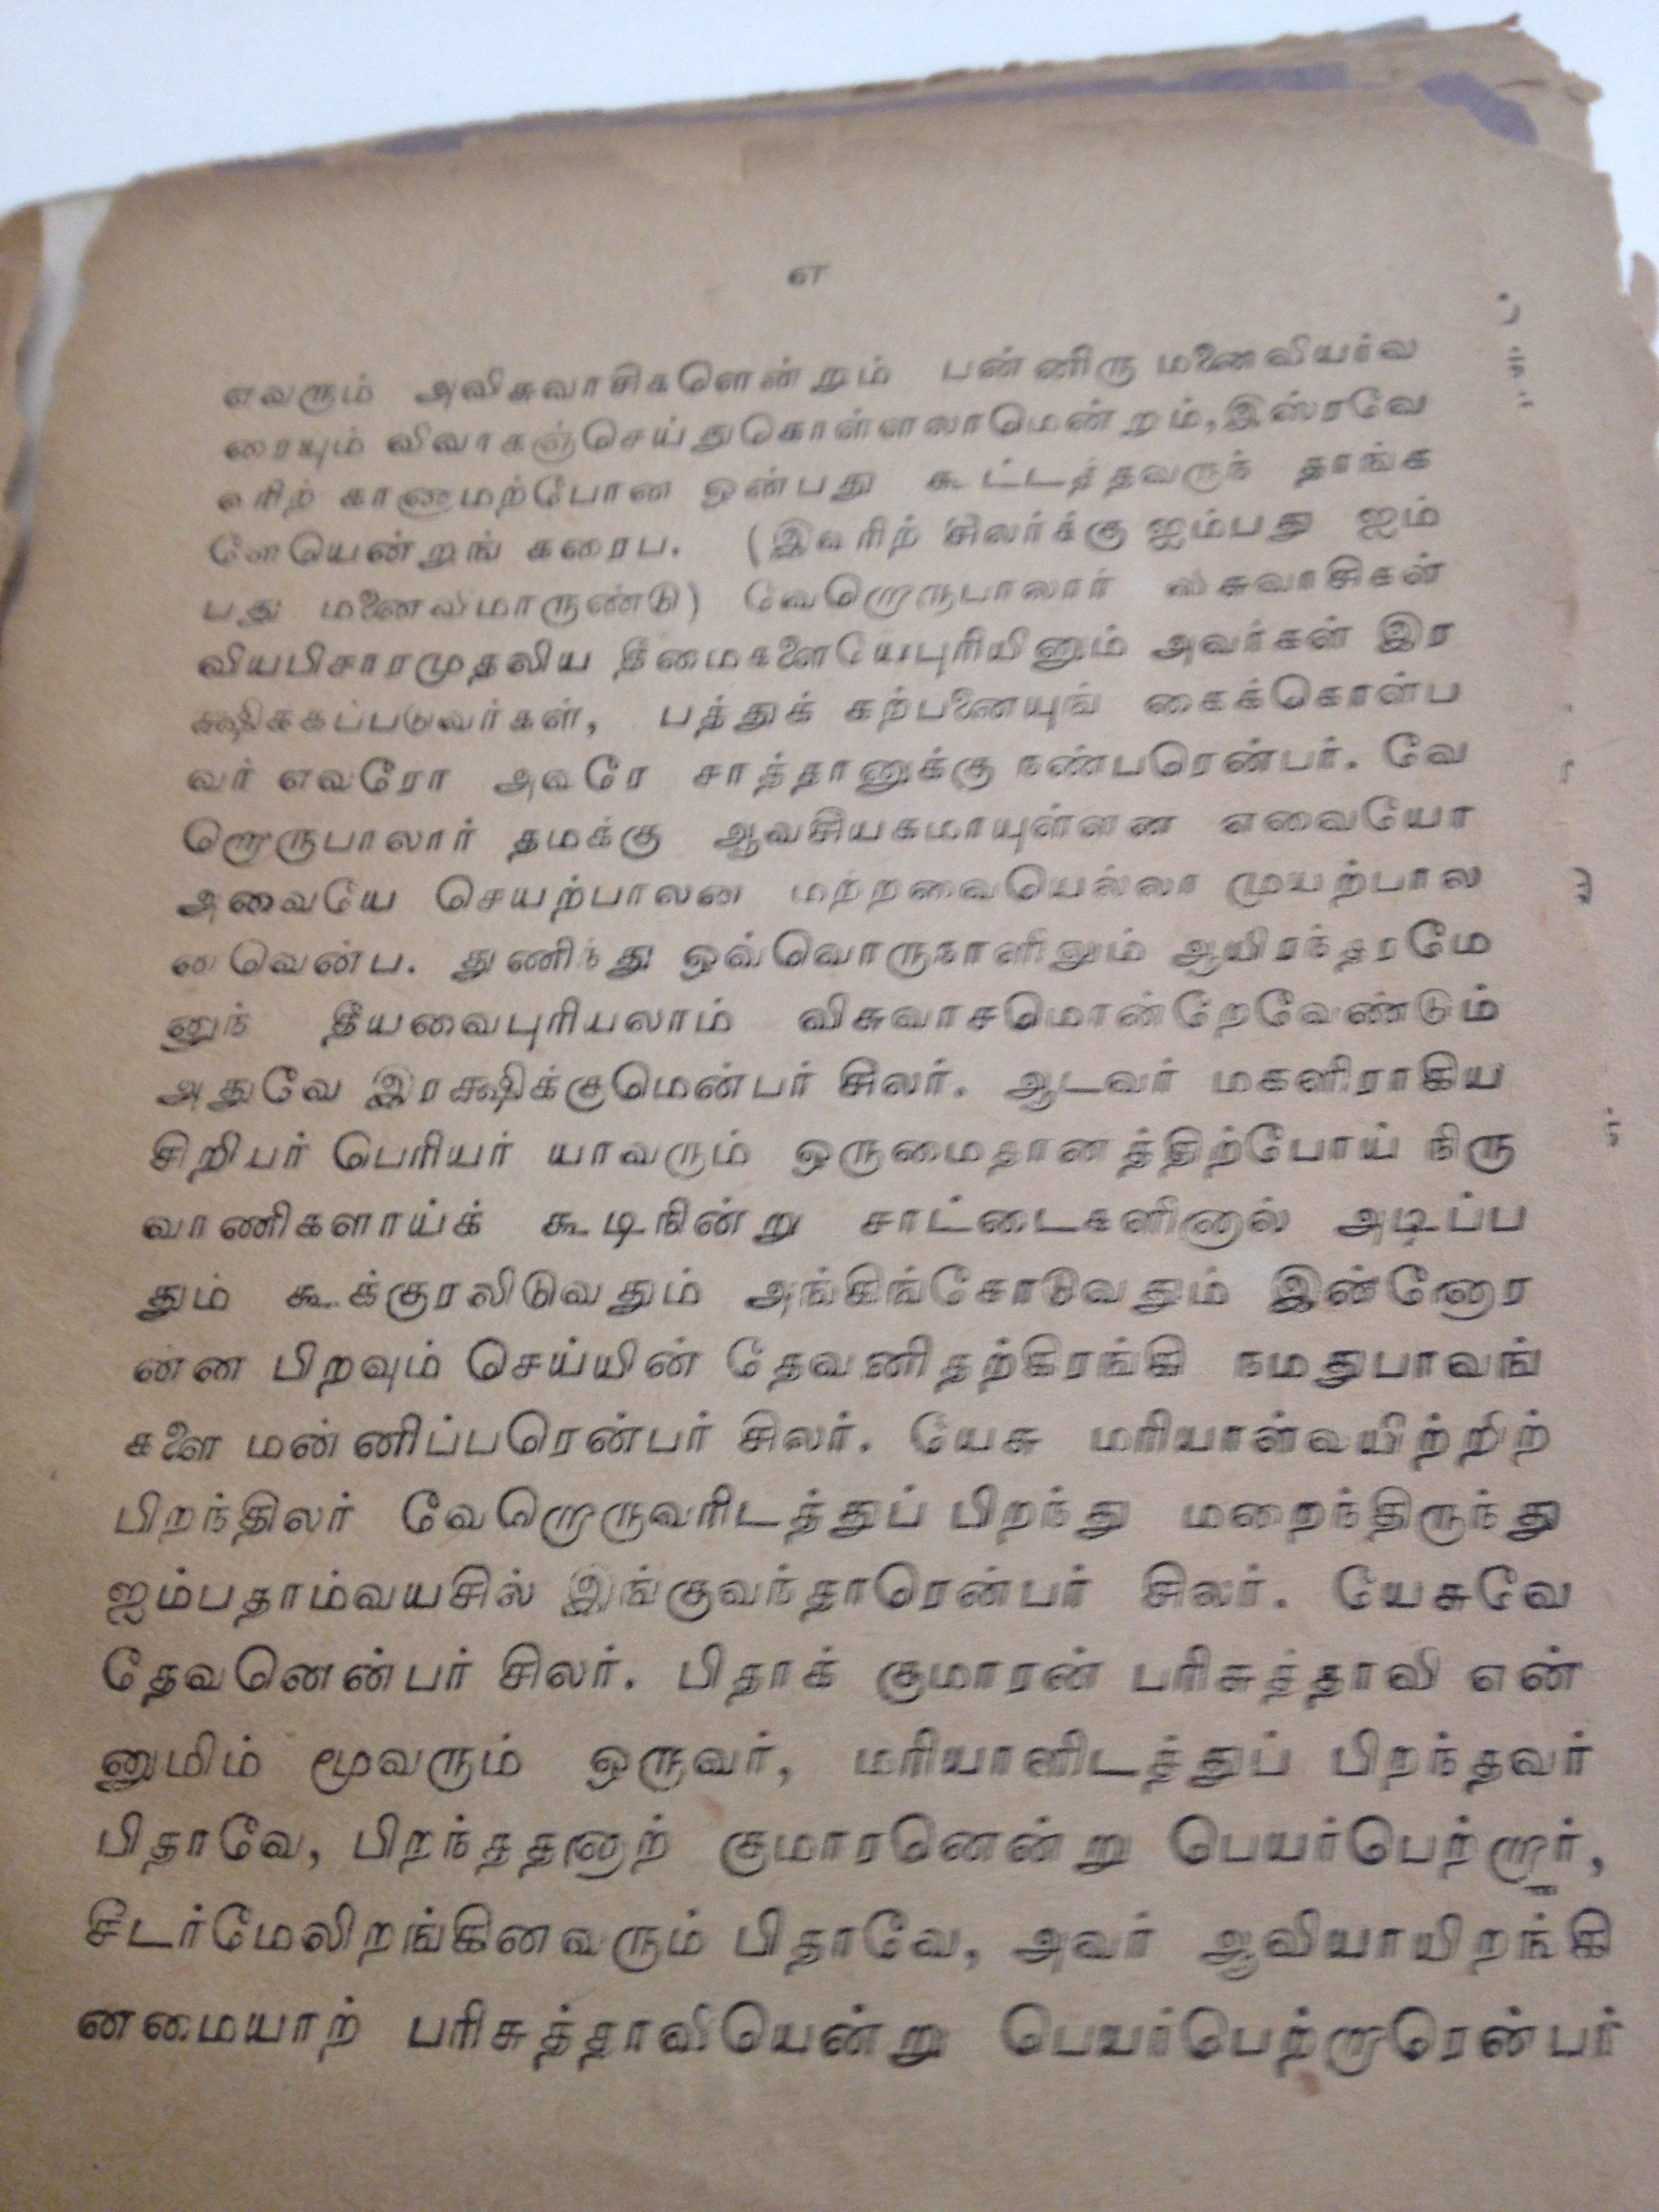 எ
எவரும் அவிசுவாசிகளென்றும் பன்னிரு மனைவியர்வ
ரையும் விவாகஞ்செய்துகொள்ளலாமென்றும்,இஸ்ரவே
லரிற் காணாமற்போன ஒன்பது கூட்டத்தவருந் தாங்க
ளேயென்றுங் கரைப. (இவரிற் சிலர்க்கு ஐம்பது ஐம்
பது மனைவிமாருண்டு) வேறொருபாலார் விசுவாசிகள்
வியபிசாரமுதலிய தீமைகளையேபுரியினும் அவர்கள் இர
க்ஷிக்கப்படுவர்கள், பத்துக் கற்பனையுங் கைக்கொள்ப
வர் எவரோ அவரே சாத்தானுக்கு நண்பரென்பர். வே
றொருபாலார் தமக்கு ஆவசியகமாயுள்ளன எவையோ
அவையே செயற்பாலன மற்றவையெல்லா முயற்பால
னவென்ப. துணிந்து ஒவ்வொருநாளிலும் ஆயிரந்தரமே
னுந் தீயவைபுரியலாம் விசுவாசமொன்றேவேண்டும்
அதுவே இரக்ஷிக்குமென்பர் சிலர். ஆடவர் மகளிராகிய
சிறியர் பெரியர் யாவரும் ஒருமைதானத்திற்போய் நிரு
வாணிகளாய்க் கூடிநின்று சாட்டைகளினால் அடிப்ப
தும் கூக்குரலிடுவதும் அங்கிங்கோடுவதும் இன்னோர
ன்ன பிறவும் செய்யின் தேவனிதற்கிரங்கி நமதுபாவங்
களை மன்னிப்பரென்பர் சிலர். யேசு மரியாள்வயிற்றிற்
பிறந்திலர் வேறொருவரிடத்துப் பிறந்து மறைந்திருந்து
ஐம்பதாம்வயசில் இங்குவந்தாரென்பர் சிலர். யேசுவே
தேவனென்பர் சிலர். பிதாக் குமாரன் பரிசுத்தாவி என்
னுமிம் மூவரும் ஒருவர், மரியாளிடத்துப் பிறந்தவர்
பிதாவே, பிறந்ததனாற் குமாரனென்று பெயர்பெற்றார்,
சீடர்மேலிறங்கினவரும் பிதாவே, அவர் ஆவியாயிறங்கி
னமையாற் பரிசுத்தாவியென்று பெயர்பெற்றாரென்பர்